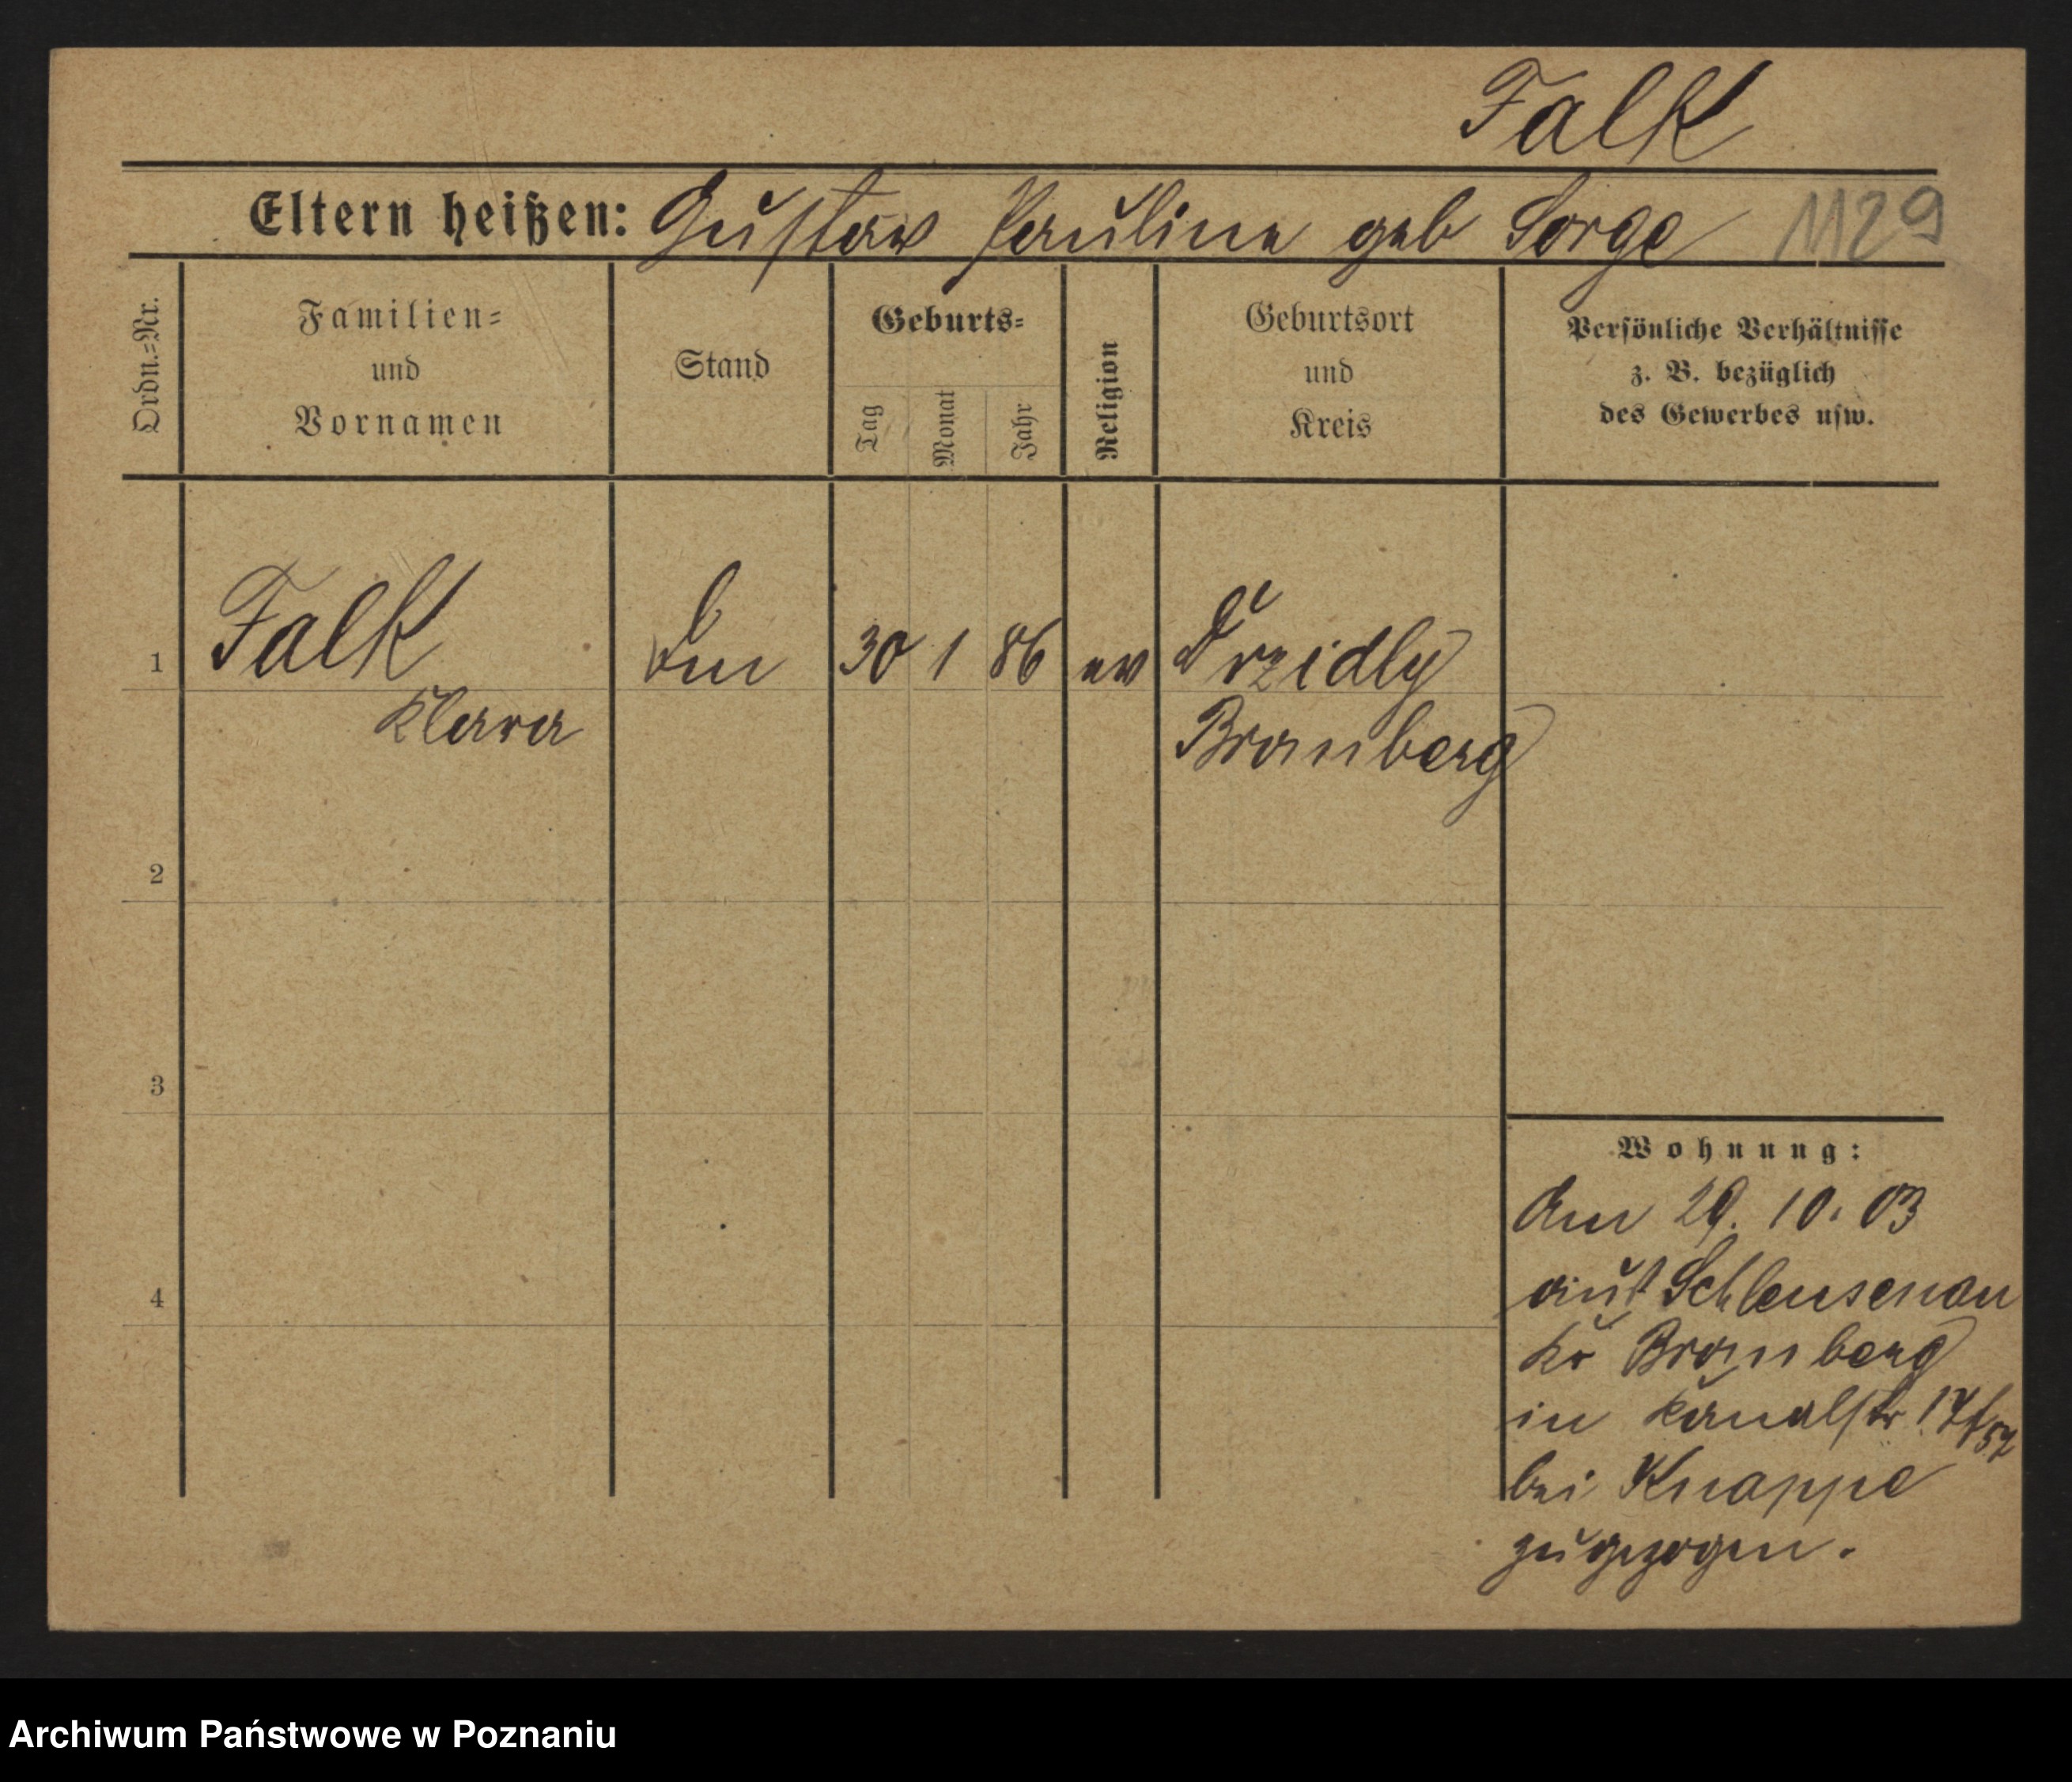 Falk
Eltern heißen: Gustav Pauline geb Sorge 1129
Ordn.=Nr.
Familien=
und
Vornamen
Stand
Geburts=
Tag
Monat
Jahr
Religion
Geburtsort
und
Kreis
Persönliche Verhältnisse
z. B. bezüglich
des Gewerbes usw.
1 Falk 30 1 86 ev
Klara Bromberg
2
3
4
Wohnung:
Am 29. 10. 03
aus Schleusenau
Kr Bromberg
in Kanalstr
bei Knappe
zugezogen.
Archiwum Państwowe w Poznaniu